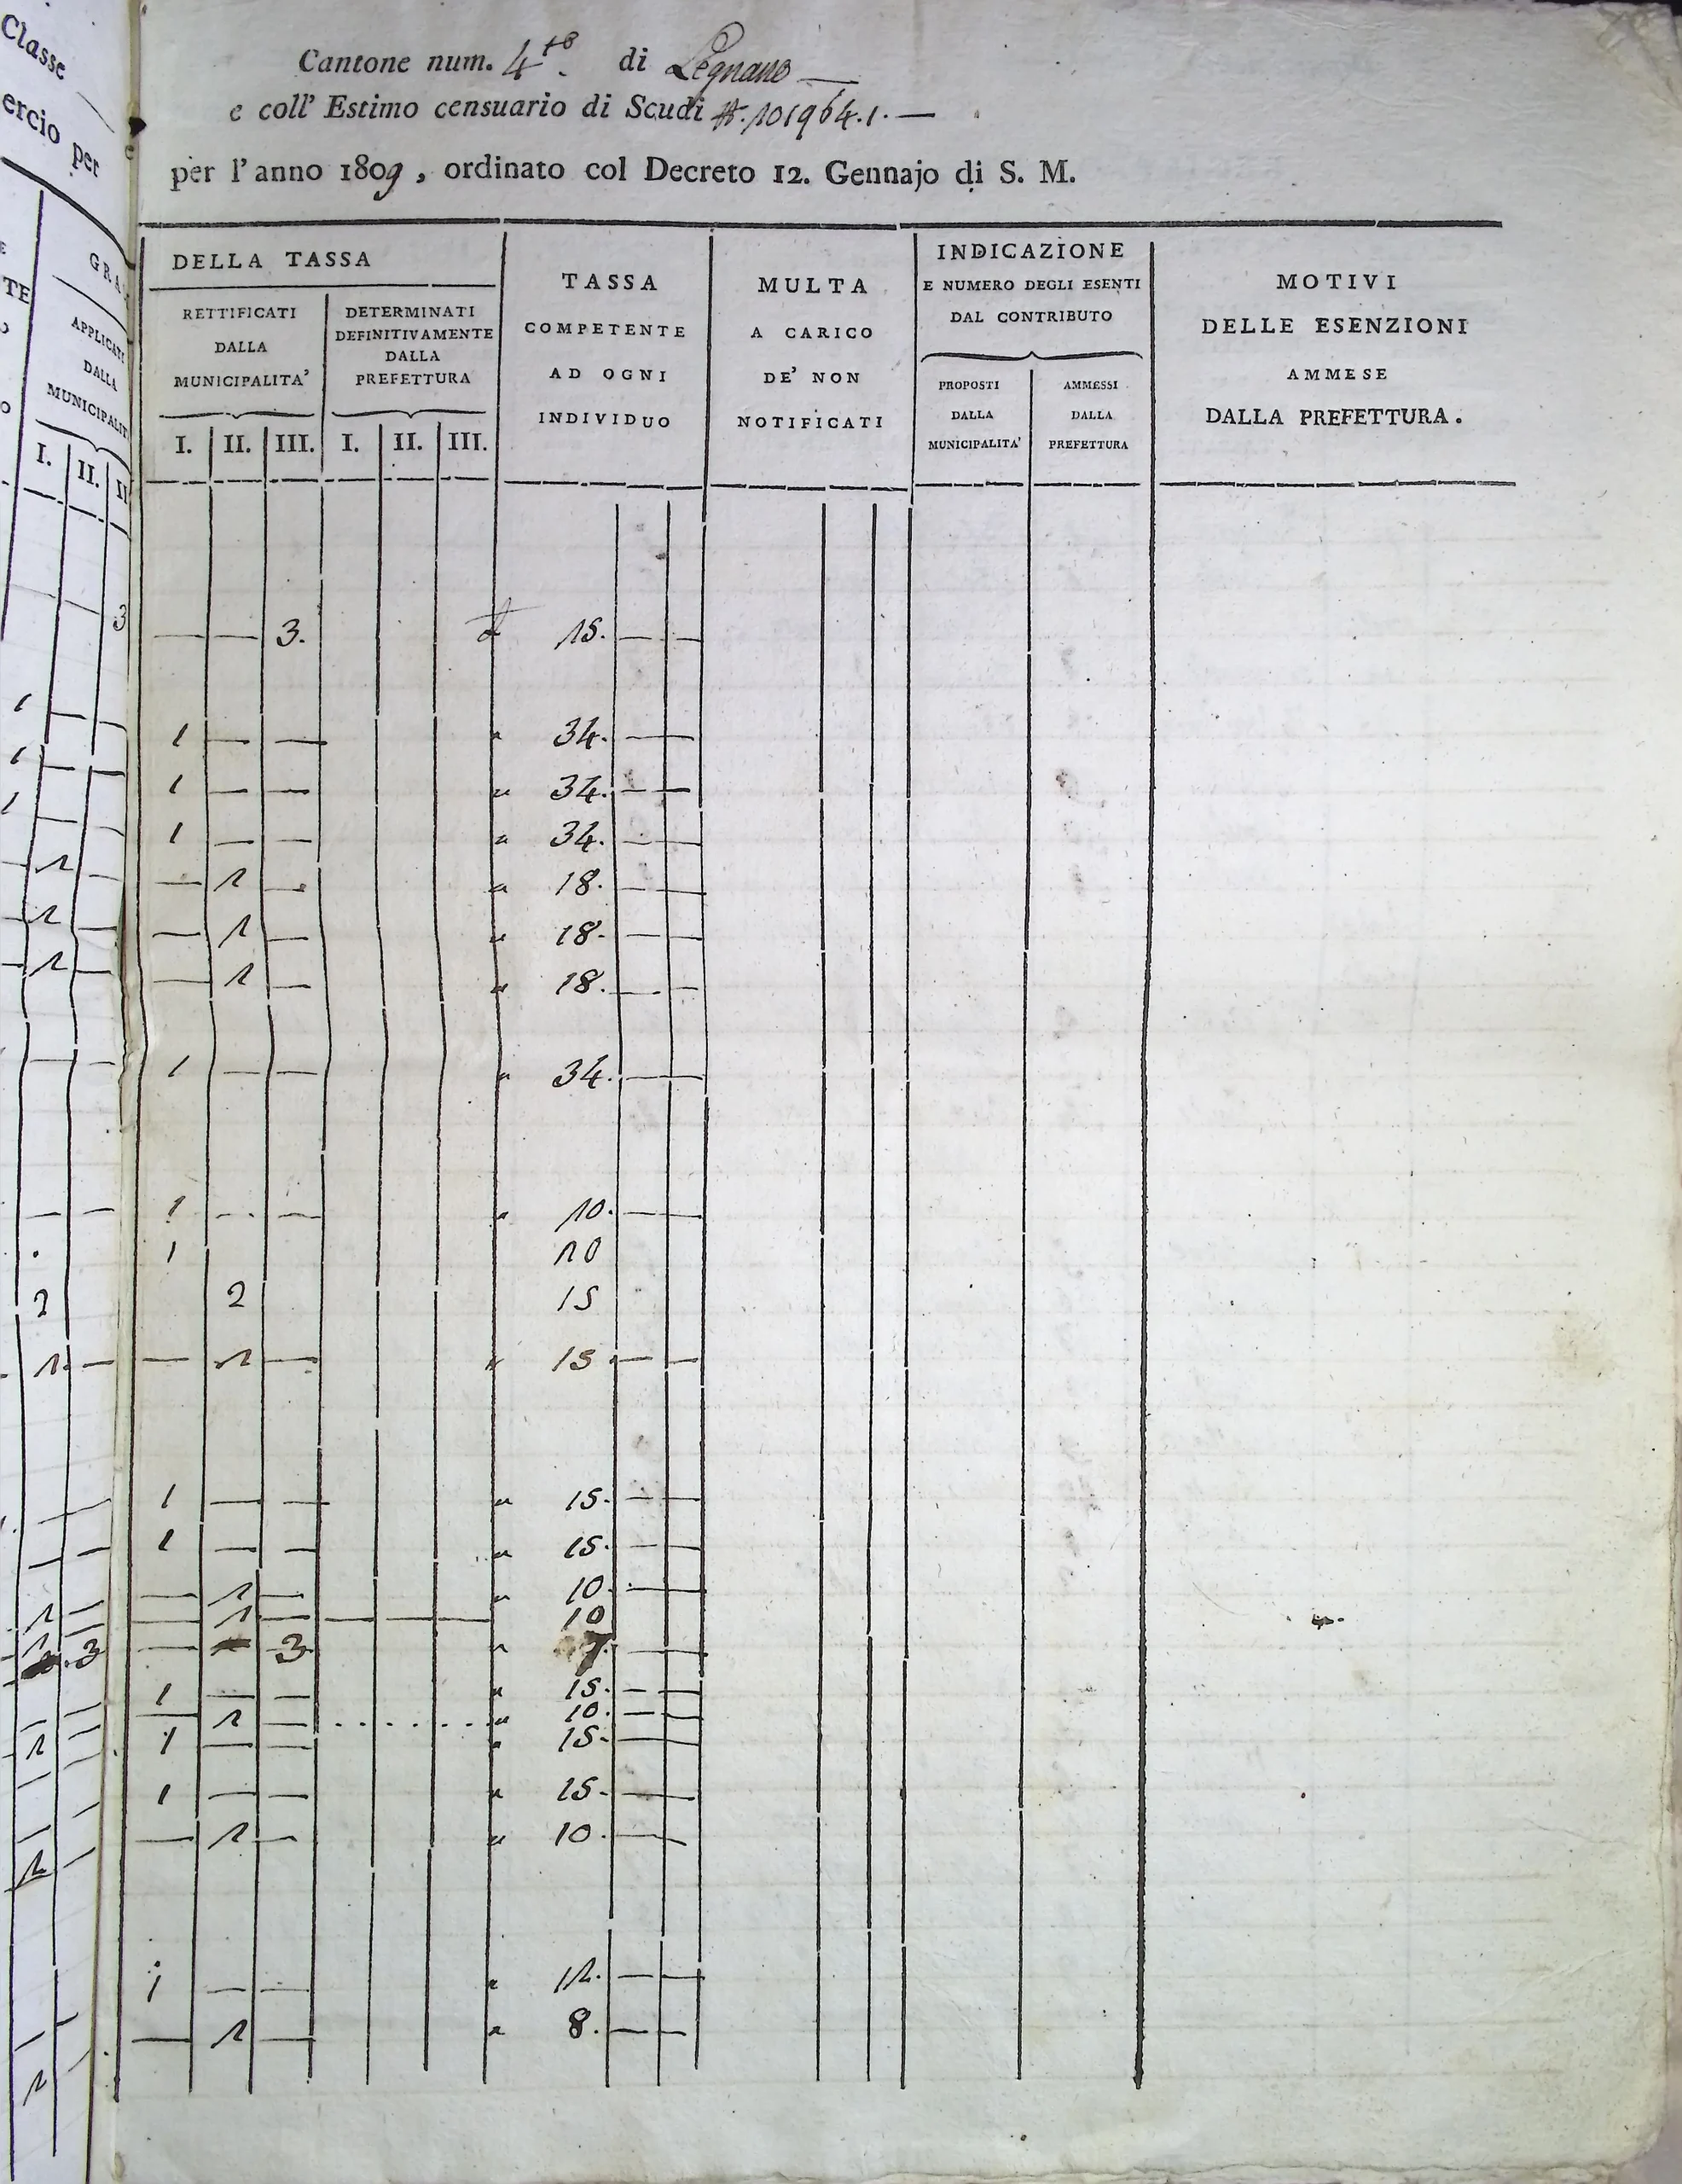 Classe
ercio per
Cantone num. 4to. di Legnano —
e coll' Estimo censuario di Scudi #. 101964.1. —
per l'anno 1809, ordinato col Decreto 12. Gennajo di S. M.
TE
GRA
APPLICATI
DALLA
MUNICIPALIT
I. II. II
DELLA TASSA
RETTIFICATI
DALLA
MUNICIPALITA'
I. II. III.
DETERMINATI
DEFINITIVAMENTE
DALLA
PREFETTURA
I. II. III.
TASSA
COMPETENTE
AD OGNI
INDIVIDUO
MULTA
A CARICO
DE' NON
NOTIFICATI
INDICAZIONE
E NUMERO DEGLI ESENTI
DAL CONTRIBUTO
PROPOSTI
DALLA
MUNICIPALITA'
AMMESSI
DALLA
PREFETTURA
MOTIVI
DELLE ESENZIONI
AMMESE
DALLA PREFETTURA.
3 — — 3. 15. — —
1 — — 1 — — " 34. — —
1 — — 1 — — " 34. — —
1 — — 1 — — " 34. — —
— 1 — — 1 — " 18. — —
— 1 — — 1 — " 18. — —
— 1 — — 1 — " 18. — —
— — 1 — — " 34. — —
— — 1 — — " 10. — —
1 10
2 2 15
— 1. — — 1 — " 15 — —
— — 1 — — " 15. — —
— — 1 — — " 15. — —
1 — — 1 — " 10. — —
1 — — 1 — — — — 10
3 — 3 " 7. — —
— — 1 — — " 15. — —
1 — — 1 — . . . . . . " 10. — —
— — 1 — — " 15. — —
— — 1 — — " 15. — —
1 — — 1 — " 10. — —
— 1 — — " 12. — —
1 — — 1 — " 8. — —